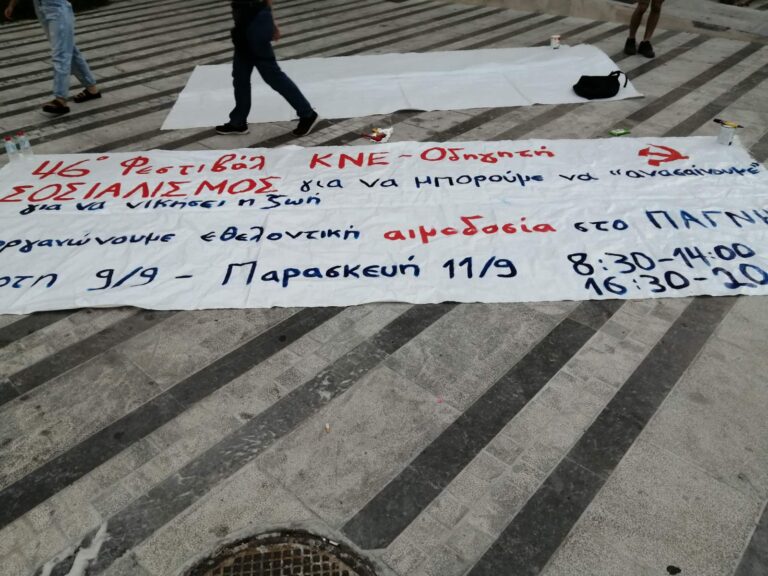 46° Φεστιβάλ ΚΝΕ - Οδηγητή
ΣΟΣΙΑΛΙΣΜΟΣ για να μπορούμε να "ανασαίνουμε"
για να νικήσει η ζωή
οργανώνουμε εθελοντική αιμοδοσία στο ΠΑΓΝΗ
9/9 - Παρασκευή 11/9 8:30-14:00
16:30-20